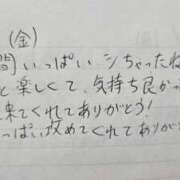 (金)
間いっぱいシちゃったね
と楽しくて、気持ち良かっ
来てくれてありがとう!
っぱい攻めてくれてありが